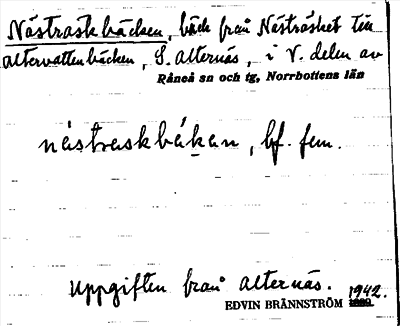 Nästraskbäcken, bäck från Nästräsket till
altervattenbäcken, S. alternäs, i V. delen av
Råneå sn och tg, Norrbottens län
nástraskbák̬an, bf. fem.
Uppgiften från alternäs.
EDVIN BRÄNNSTRÖM 1942.